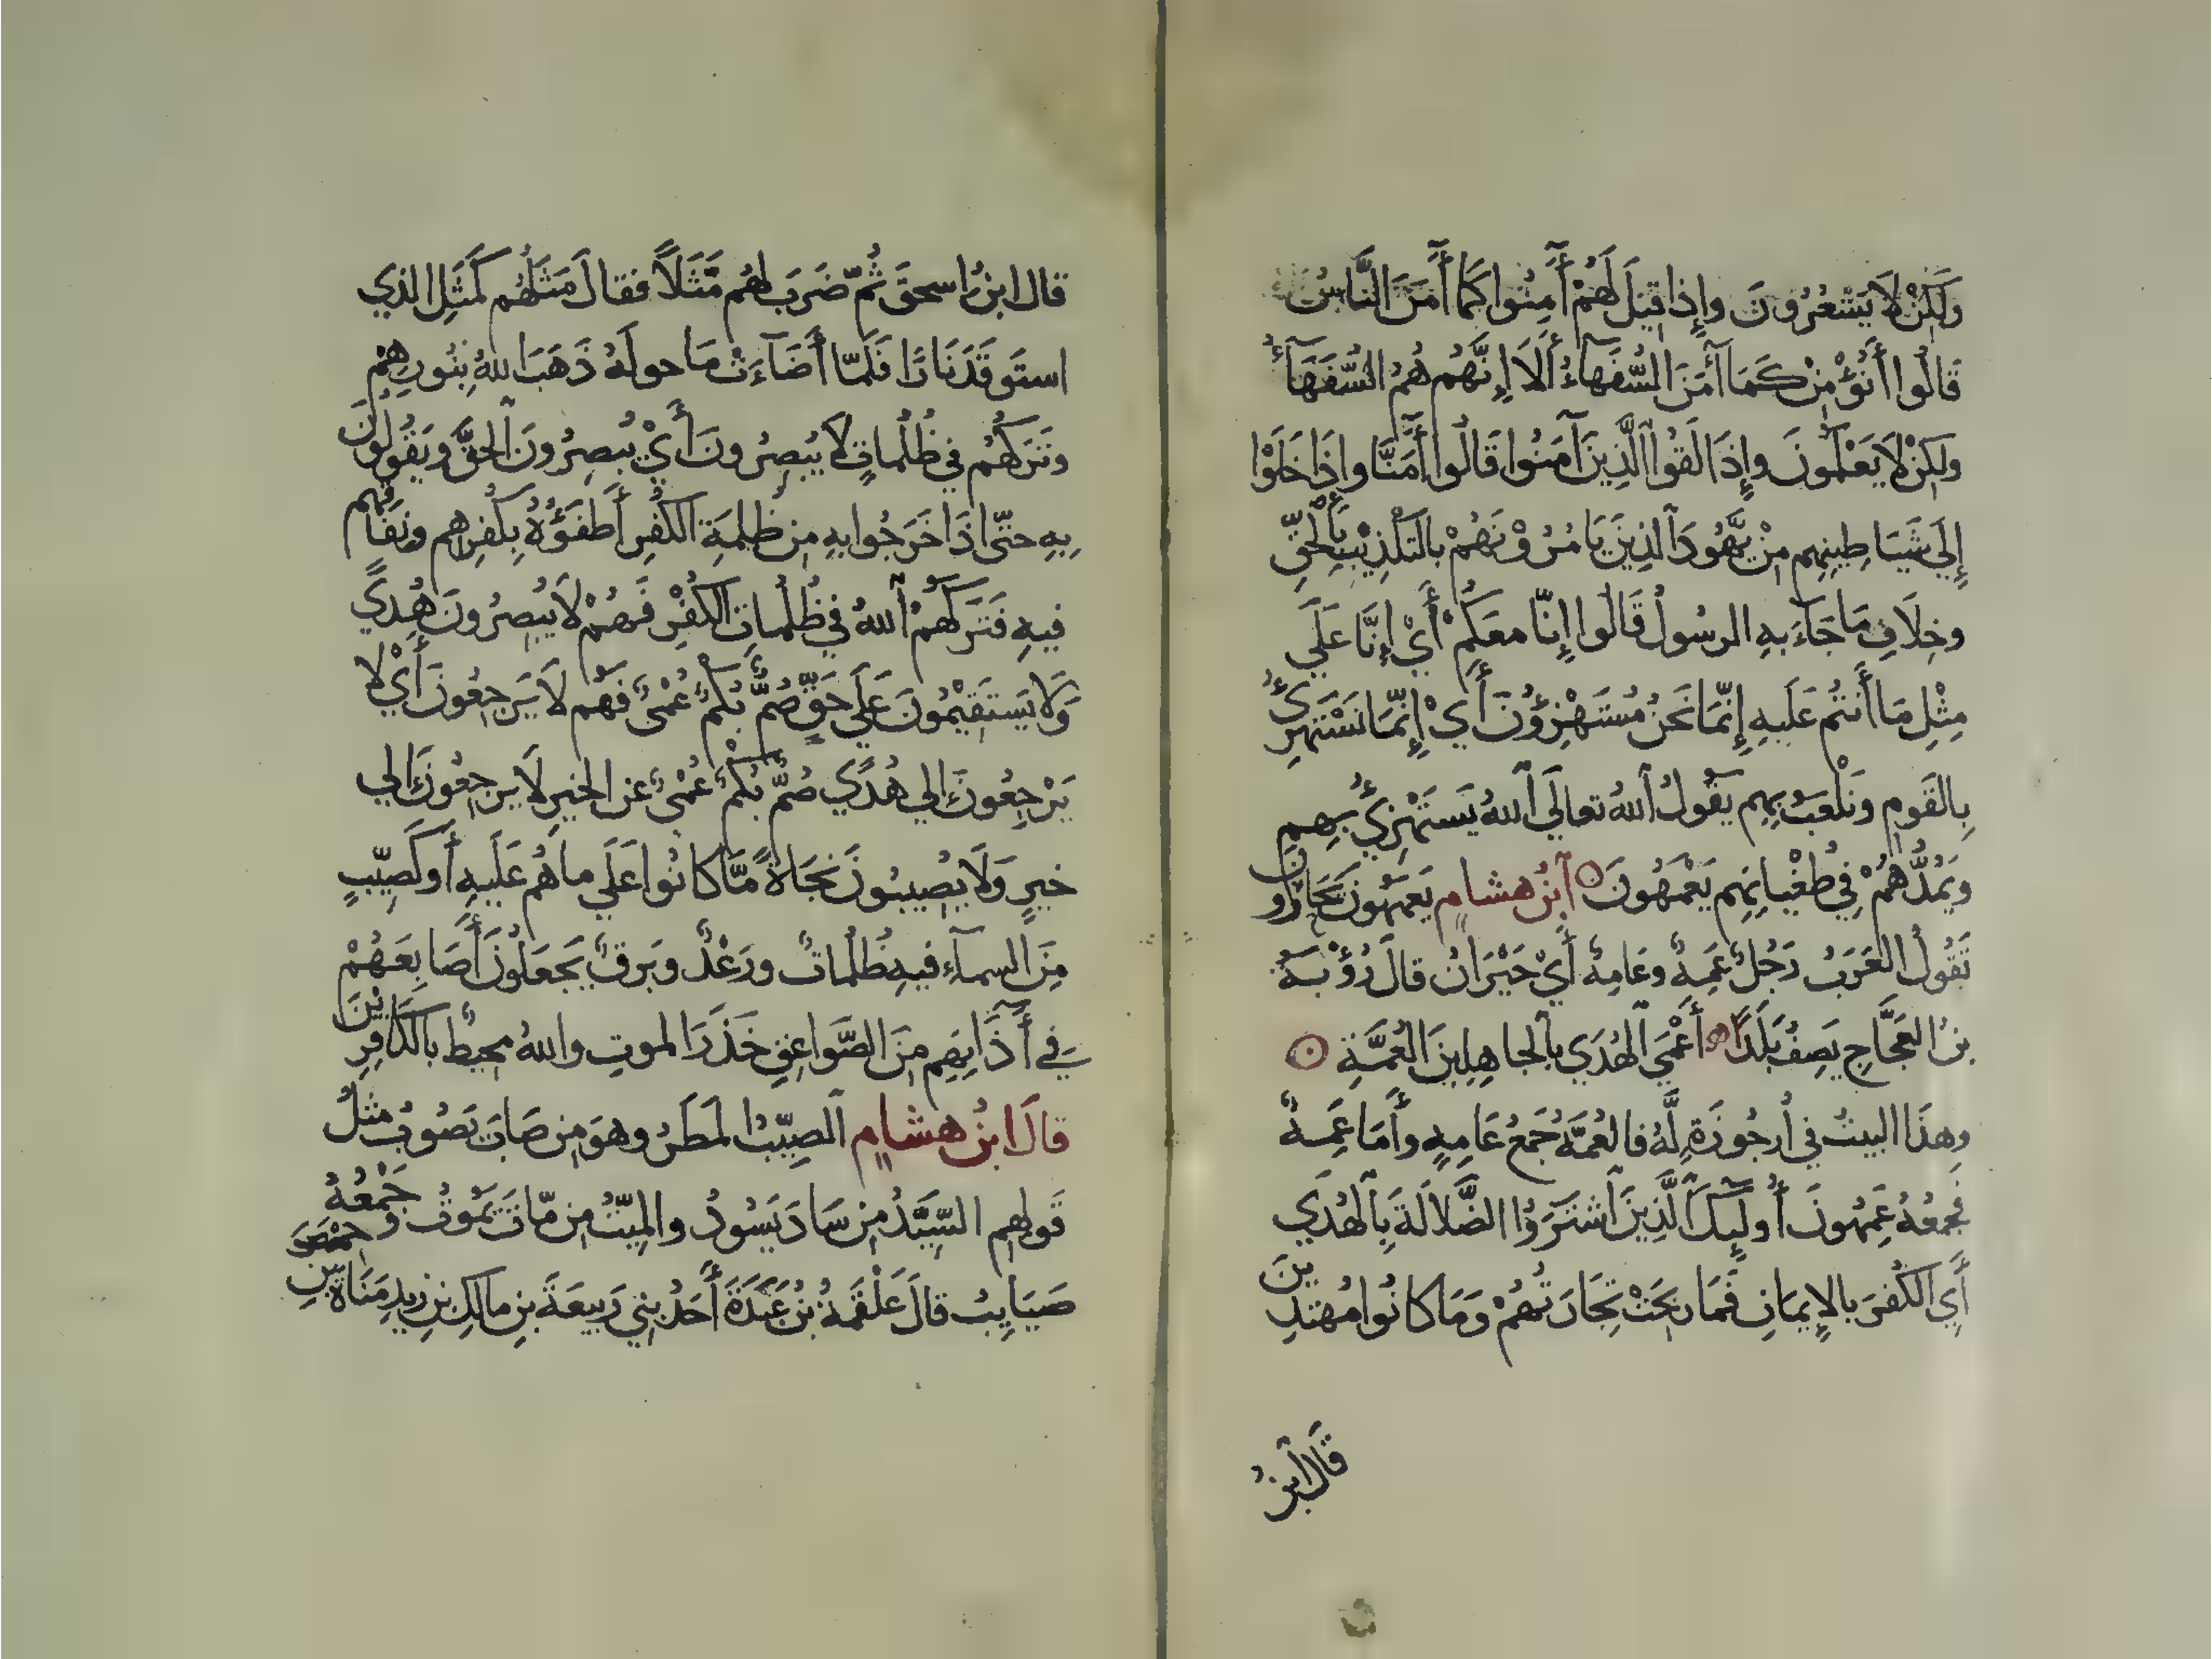 وَلَكِنْ لَا يَشْعُرُونَ وإِذا قِيلَ لَهُمْ أَمِنُوا كَمَا أَمَنَ النَّاسُ
قَالُوا أَنُؤْمِنُ كَمَا آمَنَ السُّفَهَآءُ أَلَا إِنَّهُمْ هُمُ السُّفَهَآءُ
ولكِنْ لَا يَعْلَمُونَ وإِذَا لَقُوا الَّذِينَ آمَنُوا قَالُوا أَمَنَّا وإِذَا خَلَوْا
إِلَي شَيَاطِينِهِم مِنْ يَّهُودَ الذِينَ يَامُرُوْنَهُمْ بالتَكْذِيْبِ بِالْحَقِّ
وخِلَافِ مَا جَاءَ بهِ الرسُولُ قَالُوا إِنَّا معَكُمْ أَيْ إِنَّا عَلَي
مِثْلِ مَا أَنتُم عَلَيهِ إِنَّمَا نَحنُ مُسْتَهْزِؤُنَ أَيْ إِنَّمَا نَسْتَهزِئُ
بِالقَومِ وَنَلْعَبُ بِهِم يَقُولُ اللهُ تعالَي اللهُ يَستَهْزِئُ بِهِم
ويَمُدُّهُمْ فِي طُغْيانِهِم يَعْمَهُونَ ابنُ هشامٍ يَعمَهُونَ يَحَارُونَ
تَقُولُ العَرَبُ رَجُلٌ عَمِهٌ وعَامِهٌ أَيْ حَيْرَانُ قالَ رُؤْبَةُ
بنُ العَجَّاجِ يَصِفُ بَلَدًا أَعْمَي الهُدَي بالجاهِلِينَ العُمَّهِ
وهذَا البيتُ في أُرجُوزَةٍ لَّهُ فالعُمَّهُ جَمعُ عَامِهٍ وأَمَا عَمِهٌ
فجمعُهُ عَمِهُونَ أُولَئِكَ الَّذِينَ اشْتَرَوُا الضَّلَالَةَ بِالهُدَي
أَيِ الكُفرَ بالإِيمَانِ فَمَا ربحَتْ تِجَارَتُهُمْ وَمَا كانُوا مُهتدِينَ
قَالَ ابنُ
قال ابنُ اسحقَ ثُمّ ضَرَبَ لهُم مَّثَلًا فقالَ مَثَلُهُم كَمَثَلِ الذِي
استَوقَدَ نَارًا فَلَمّا أَضَآءَتْ مَا حولَهُ ذَهَبَ اللهُ بِنُورِهِمْ
وتَرَكَهُم في ظُلُماتٍ لَا يُبصِرُونَ أَيْ يُبصِرُونَ الحَقَّ ويَقُولُونَ
بهِ حتّى اذَا خَرَجُوا بهِ مِن ظُلمَةِ الكُفرِ أَطفَؤُهُ بِكُفرِهِم ونِفَاقِهِم
فيهِ فَتَرَكَهُمْ اللهُ في ظُلُماتِ الكُفْرِ فَهُمْ لَا يُبصِرُونَ هُدًي
وَلَا يَستَقِيْمُونَ عَلَي حَقٍّ صُمٌّ بُكمٌ عُمْيٌ فَهُم لَا يَرجِعُونَ أَيْ لَا
يَرْجِعُونَ الي هُدًي صُمٌّ بُكْمٌ عُمْيٌ عن الخيرِ لَا يرجِعُونَ الي
خيرٍ وَلَا يُصِيبُونَ نَجَاةً مَّا كانُوا عَلَي ما هُم عَلَيهِ أَو كَصَيِّبٍ
مِنَ السمآءِ فيهِ ظُلُماتٌ ورَعْدٌ وبَرقٌ يَجعَلُونَ أَصَابِعَهُمْ
فِي آذَانِهِم مِنَ الصَّوَاعِقِ حَذَرَ الموتِ واللهُ محيطٌ بالكَافِرِينَ
قالَ ابنُ هشامٍ الصيِّبُ المَطَرُ وهوَ مِن صَابَ يَصُوبُ مثلُ
قَولِهِم السَّيِّدُ مِن سَادَ يَسُودُ والميِّتُ مِن مّاتَ يَمُوتُ وجَمْعُهُ
صَيَايِبُ قالَ عَلْقَمَةُ بنُ عَبَدَةَ أَحَدُ بنِي رَبيعَةَ بنِ مالكِ بنِ زيدِ مَنَاةَ بنِ